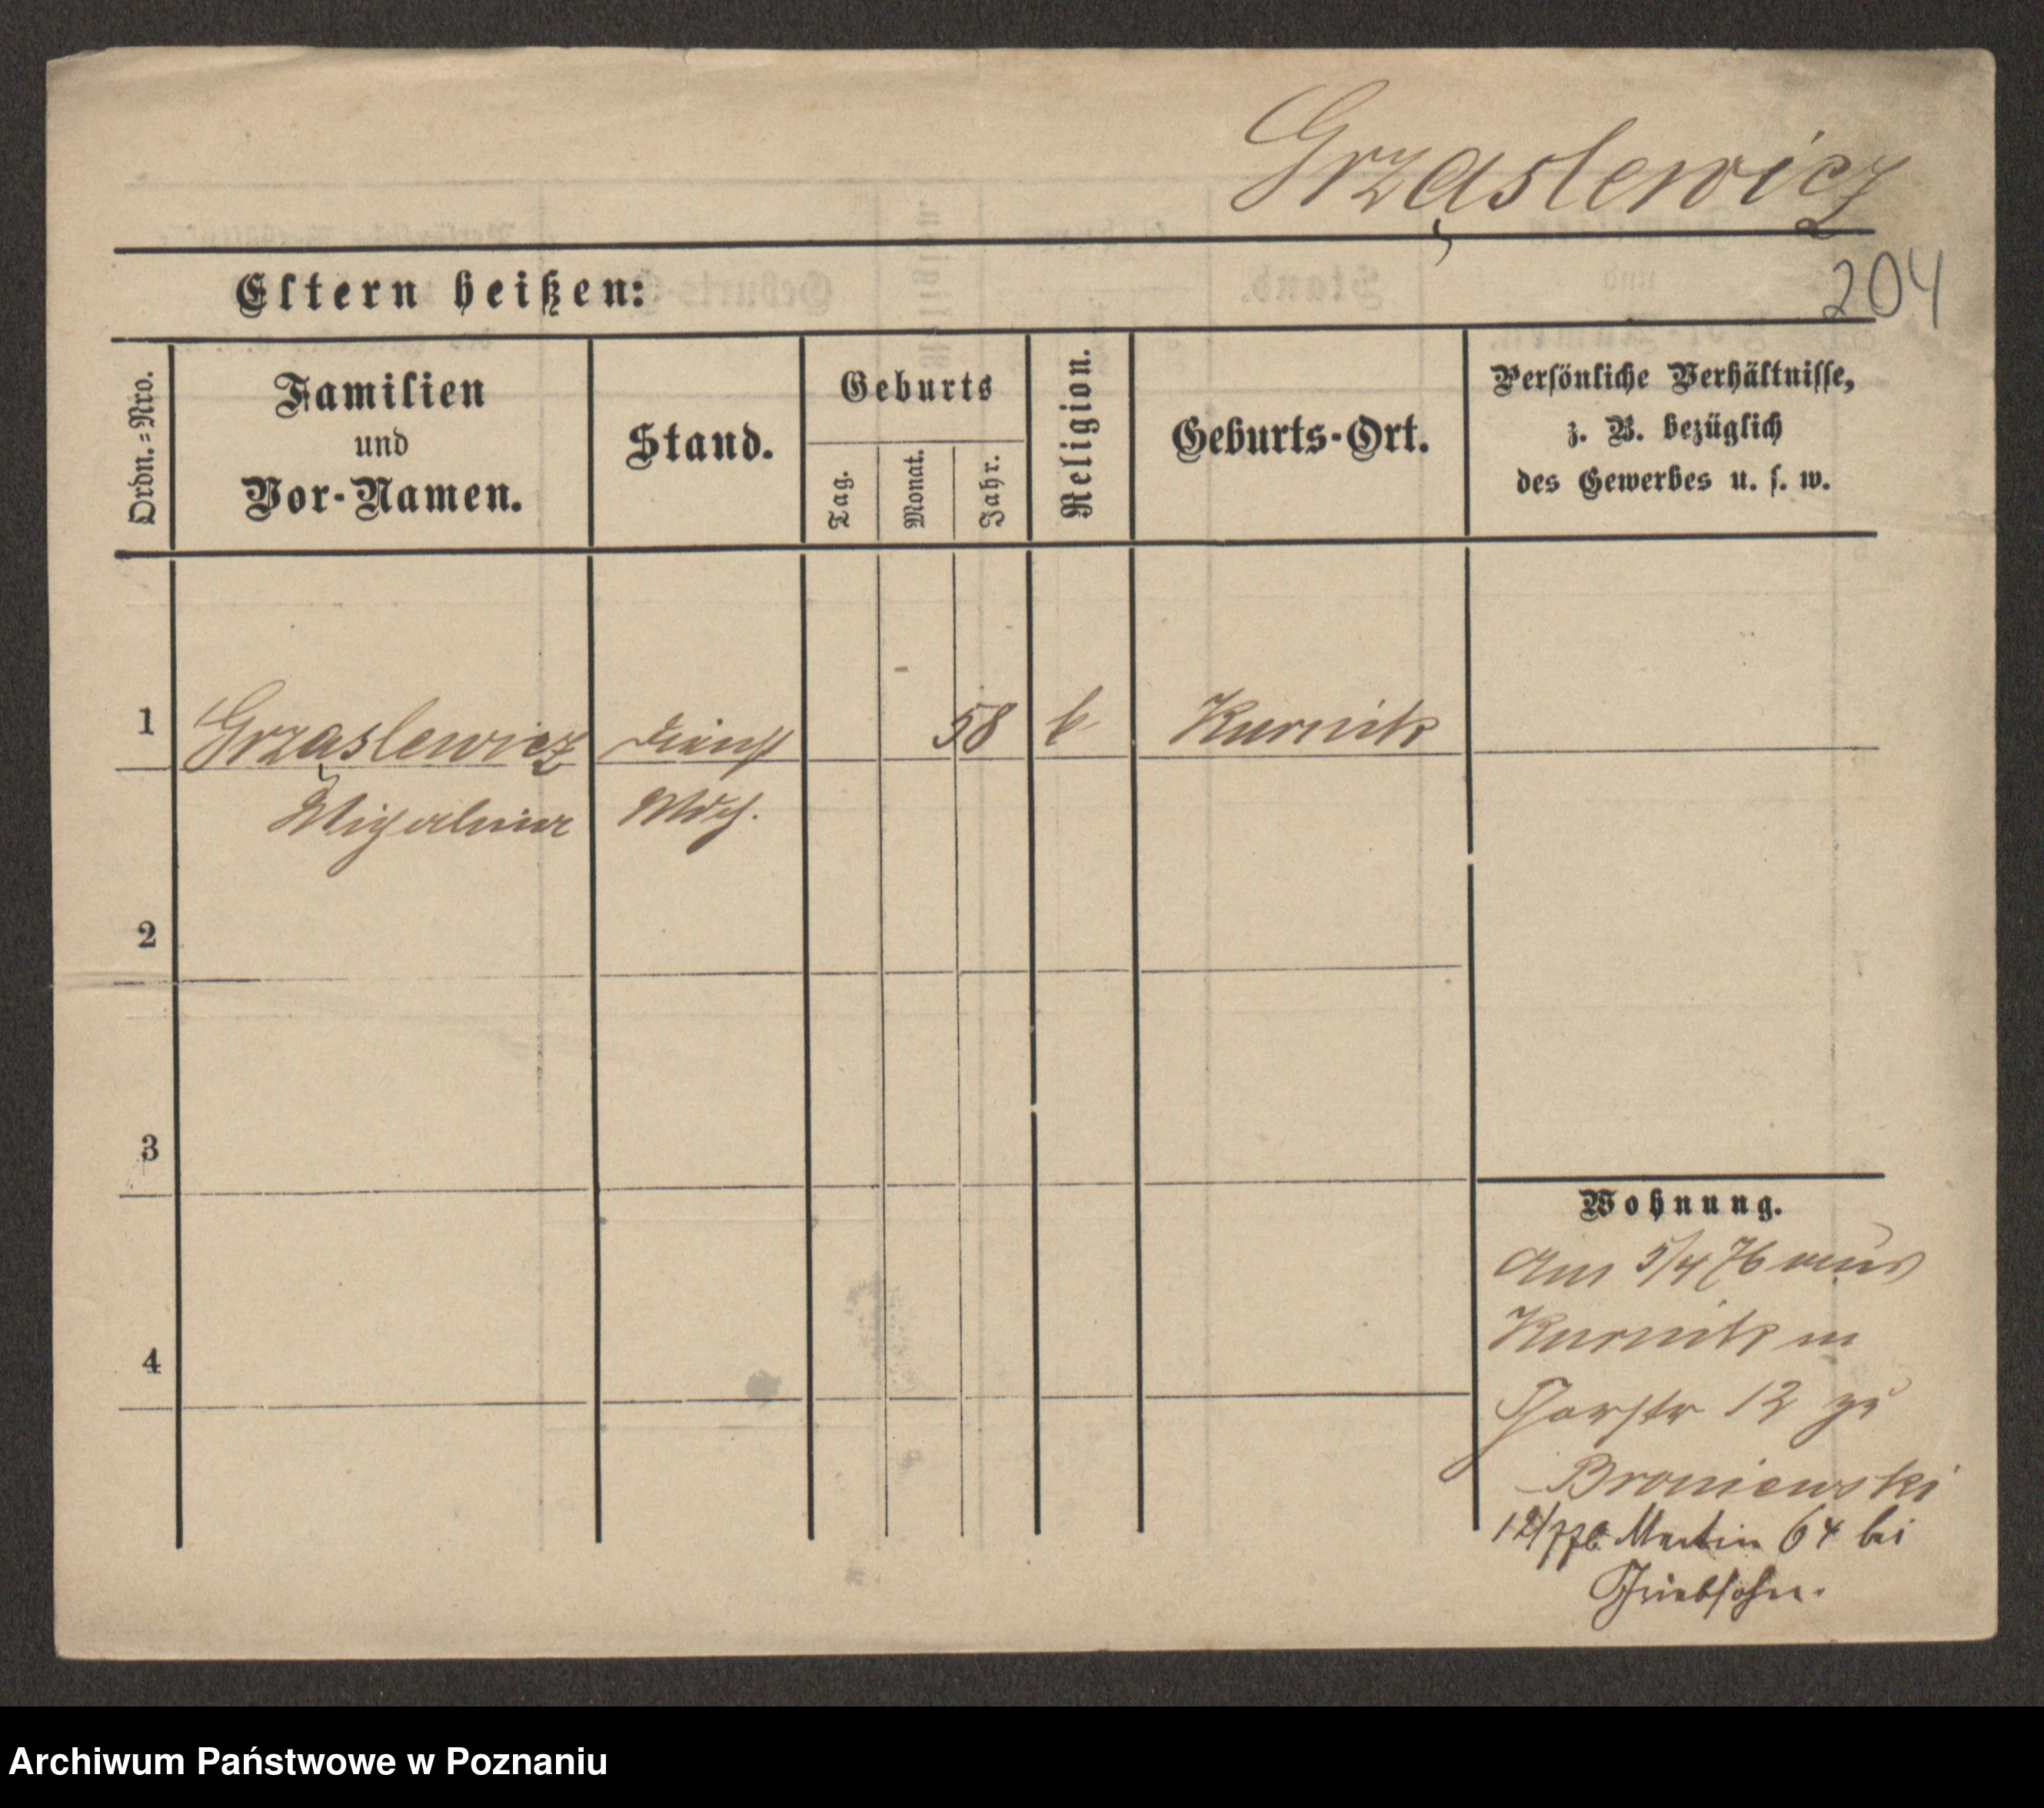 Grząslewicz
204
Eltern heißen:
Ordn.=Nro.
Familien
und
Vor-Namen.
Stand.
Geburts
Tag.
Monat.
Jahr.
Religion.
Geburts-Ort.
Persönliche Verhältnisse,
z. B. bezüglich
des Gewerbes u. s. w.
1
Grząslewicz
Dienst
58
k
Kurnik
Michalina
Mdch.
2
3
4
Wohnung.
Am 5/4 76 aus
Kurnik in
Thorstr 12 zu
Broniewski
Martin 64 bei
Archiwum Państwowe w Poznaniu